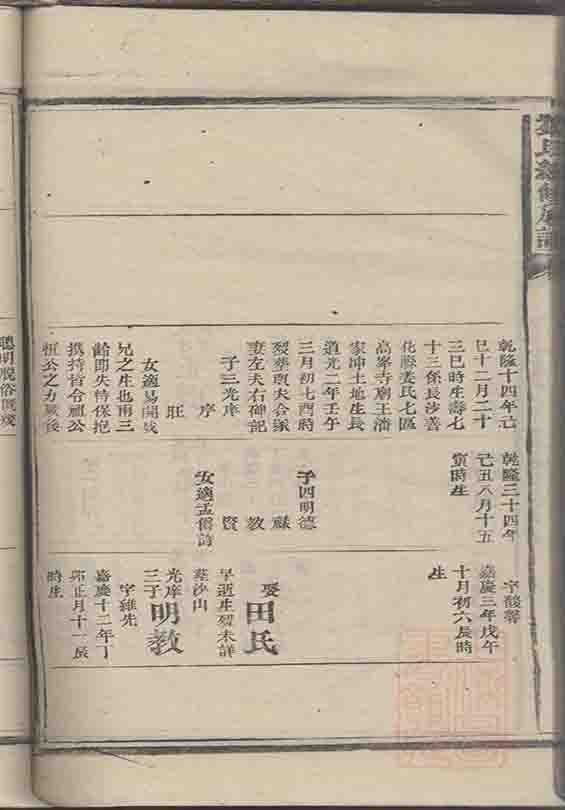 氏續修族譜
乾隆十四年己
巳十二月二十
三巳時生壽七
十三係長沙善
化縣姜氏七區
高峯寺廟王潘
家冲土地生長
道光二年壬午
三月初七酉時
歿葬原夫合冢
妻左夫右碑記
子三光庠
序
旺
女適易開成
兄之生也甫三
齡即失恃保抱
携持皆令祖公
恆公之力厥後
乾隆三十四年
己丑八月十五
寅時生
子四明德
祿
教
賢
女適孟僑詩
字馥馨
嘉慶三年戊午
十月初六辰時
生
娶田氏
早逝生歿未詳
葬沙山
光庠三子明教
字維先
嘉慶十二年丁
卯正月十一辰
時生
聰明脫俗